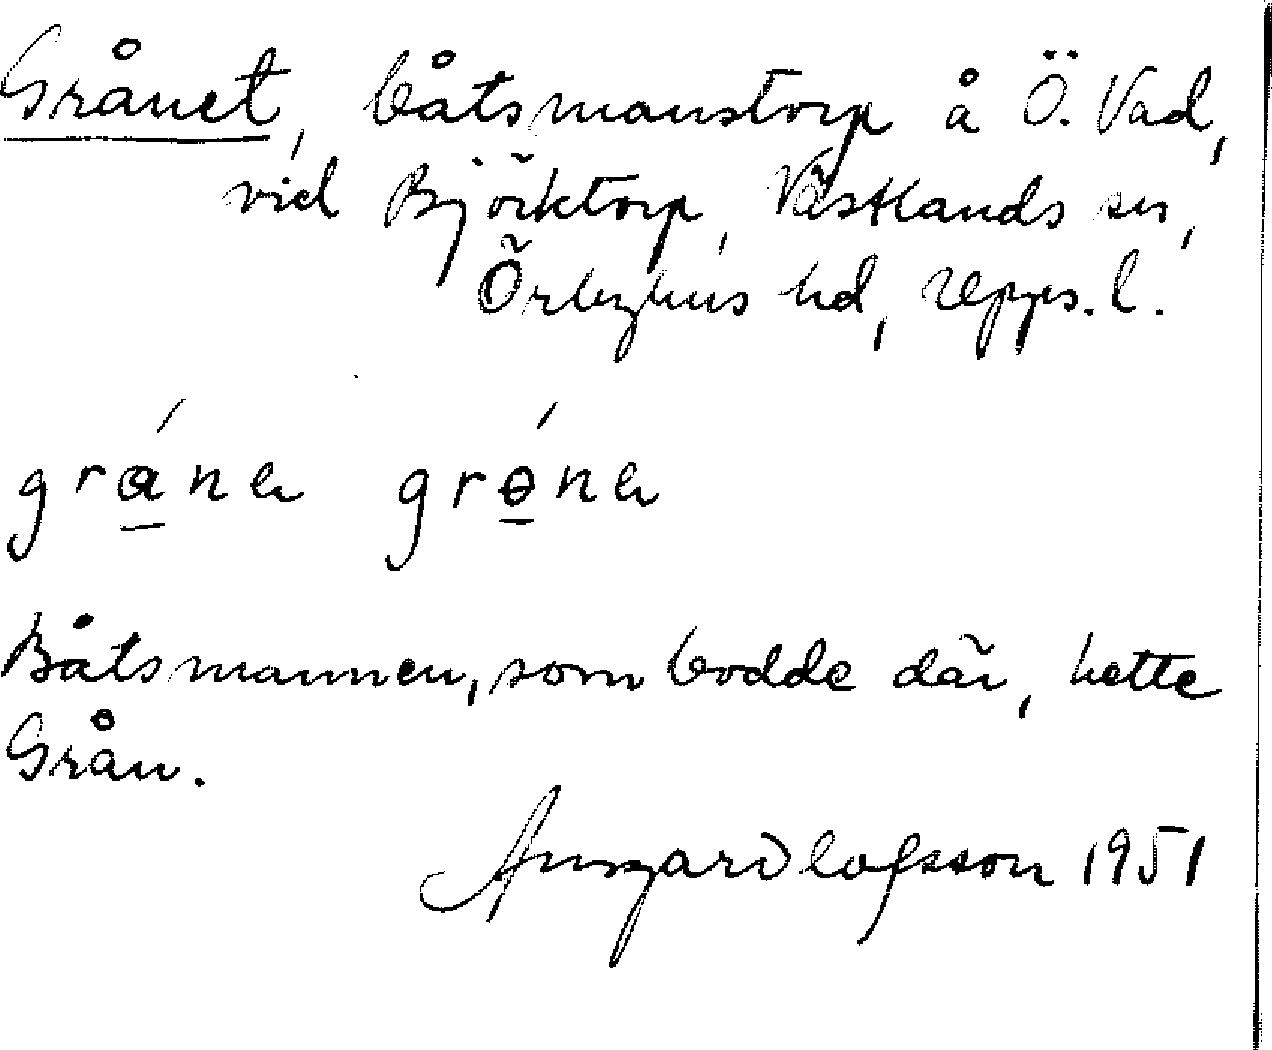 Grånet, båtsmanstorp å Ö. Vad,
vid Björktorp, Västlands sn,
Örbyhus hd, Upps. l.
grána grɵ́na
Båtsmannen, som bodde där, hette
Grån.
Olofsson 1951